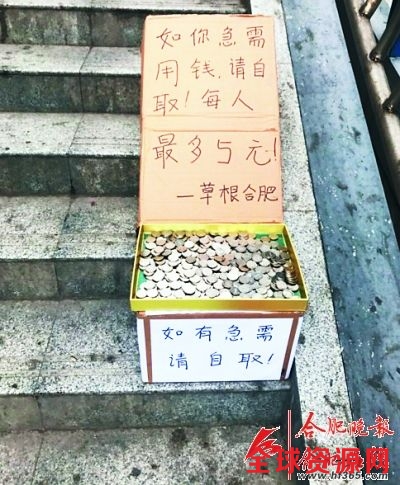 如你急需
用钱,请自
取!每人
最多5元!
—草根合肥
如有急需
请自取!
合肥晚报
全球资源网
www.hr365.com